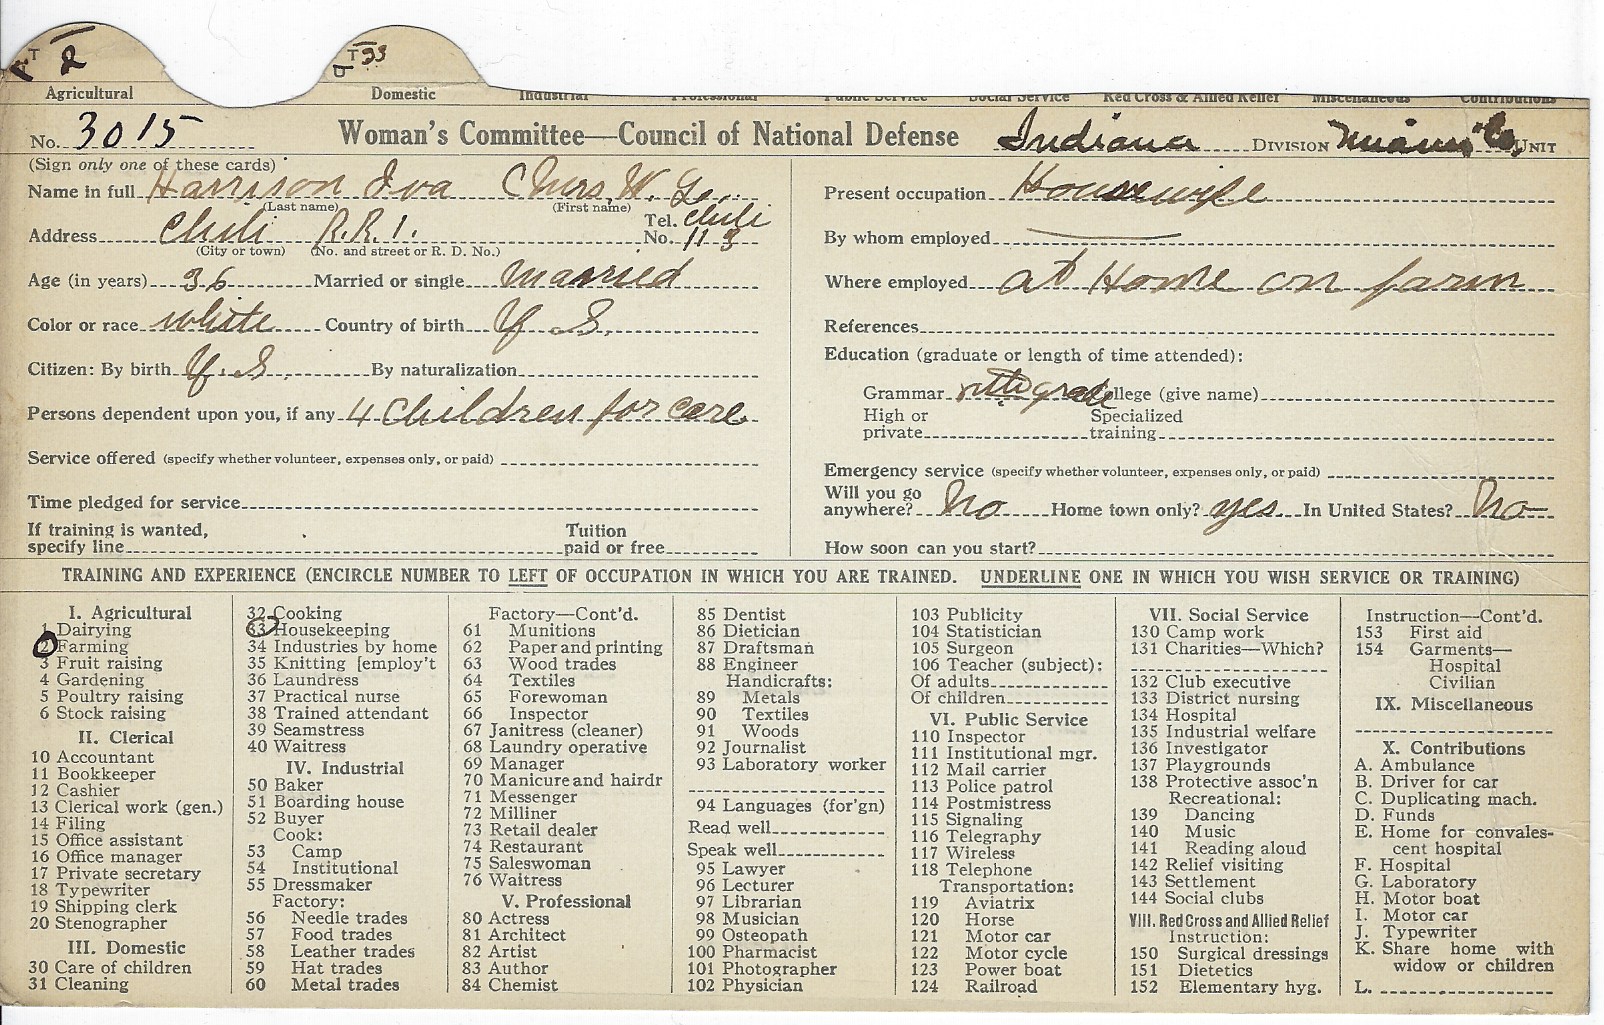 T 2
D T 33
Agricultural Domestic Industrial Professional Public Service Social Service Red Cross & Allied Relief Miscellaneous Contributions
No. 3015 Woman's Committee—Council of National Defense Indiana DIVISION Miami Co. UNIT
(Sign only one of these cards)
Name in full Harrison Iva (Mrs. W. L.
(Last name) (First name)
Address Chili R.R. 1. Tel. No. Chili 113
(City or town) (No. and street or R. D. No.)
Age (in years) 36 Married or single married
Color or race white Country of birth U S.
Citizen: By birth U.S. By naturalization
Persons dependent upon you, if any 4 Children for care
Service offered (specify whether volunteer, expenses only, or paid)
Time pledged for service
If training is wanted, specify line
Tuition paid or free
Present occupation Housewife
By whom employed
Where employed at Home on farm
References
Education (graduate or length of time attended):
Grammar grade College (give name)
High or private Specialized training
Emergency service (specify whether volunteer, expenses only, or paid)
Will you go anywhere? No Home town only? yes In United States? No
How soon can you start?
TRAINING AND EXPERIENCE (ENCIRCLE NUMBER TO LEFT OF OCCUPATION IN WHICH YOU ARE TRAINED. UNDERLINE ONE IN WHICH YOU WISH SERVICE OR TRAINING)
I. Agricultural
1 Dairying
2 Farming
3 Fruit raising
4 Gardening
5 Poultry raising
6 Stock raising
II. Clerical
10 Accountant
11 Bookkeeper
12 Cashier
13 Clerical work (gen.)
14 Filing
15 Office assistant
16 Office manager
17 Private secretary
18 Typewriter
19 Shipping clerk
20 Stenographer
III. Domestic
30 Care of children
31 Cleaning
32 Cooking
33 Housekeeping
34 Industries by home
35 Knitting [employ't
36 Laundress
37 Practical nurse
38 Trained attendant
39 Seamstress
40 Waitress
IV. Industrial
50 Baker
51 Boarding house
52 Buyer
Cook:
53 Camp
54 Institutional
55 Dressmaker
Factory:
56 Needle trades
57 Food trades
58 Leather trades
59 Hat trades
60 Metal trades
Factory—Cont'd.
61 Munitions
62 Paper and printing
63 Wood trades
64 Textiles
65 Forewoman
66 Inspector
67 Janitress (cleaner)
68 Laundry operative
69 Manager
70 Manicure and hairdr
71 Messenger
72 Milliner
73 Retail dealer
74 Restaurant
75 Saleswoman
76 Waitress
V. Professional
80 Actress
81 Architect
82 Artist
83 Author
84 Chemist
85 Dentist
86 Dietician
87 Draftsman
88 Engineer
Handicrafts:
89 Metals
90 Textiles
91 Woods
92 Journalist
93 Laboratory worker
94 Languages (for'gn)
Read well
Speak well
95 Lawyer
96 Lecturer
97 Librarian
98 Musician
99 Osteopath
100 Pharmacist
101 Photographer
102 Physician
103 Publicity
104 Statistician
105 Surgeon
106 Teacher (subject):
Of adults
Of children
VI. Public Service
110 Inspector
111 Institutional mgr.
112 Mail carrier
113 Police patrol
114 Postmistress
115 Signaling
116 Telegraphy
117 Wireless
118 Telephone
Transportation:
119 Aviatrix
120 Horse
121 Motor car
122 Motor cycle
123 Power boat
124 Railroad
VII. Social Service
130 Camp work
131 Charities—Which?
132 Club executive
133 District nursing
134 Hospital
135 Industrial welfare
136 Investigator
137 Playgrounds
138 Protective assoc'n
Recreational:
139 Dancing
140 Music
141 Reading aloud
142 Relief visiting
143 Settlement
144 Social clubs
VIII. Red Cross and Allied Relief
Instruction:
150 Surgical dressings
151 Dietetics
152 Elementary hyg.
Instruction—Cont'd.
153 First aid
154 Garments—
Hospital
Civilian
IX. Miscellaneous
X. Contributions
A. Ambulance
B. Driver for car
C. Duplicating mach.
D. Funds
E. Home for convales-
cent hospital
F. Hospital
G. Laboratory
H. Motor boat
I. Motor car
J. Typewriter
K. Share home with
widow or children
L.